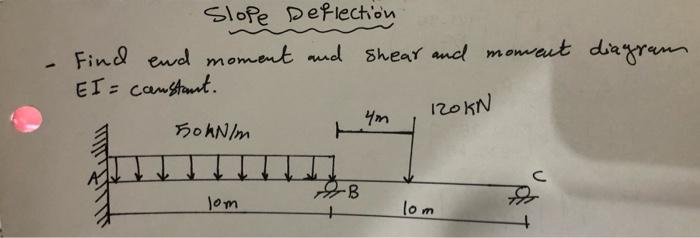 Slope Deflection
- Find end moment and shear and moment diagram
EI = constant.
50kN/m
4m
120KN
A
B
C
10m
10m